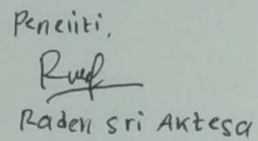 Peneliti,
Raden Sri Aktesa